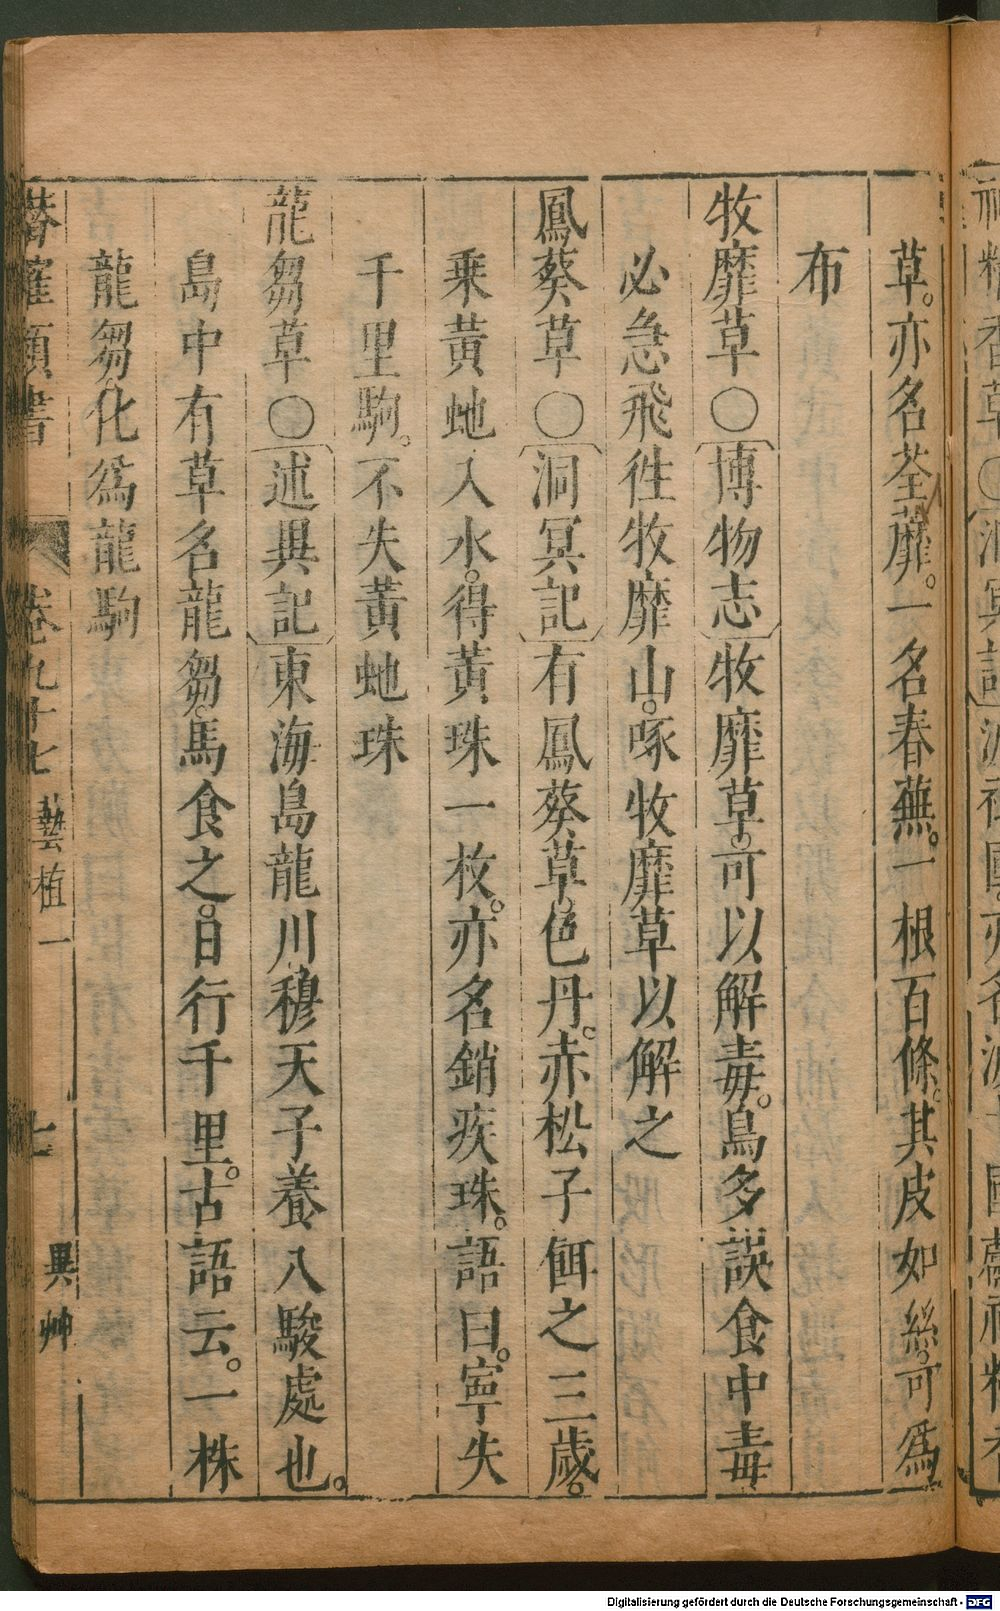 草。亦名荃蘼。一名春蕪。一根百條。其皮如絲。可爲
布
牧靡草〇博物志牧靡草。可以解毒。鳥多誤食中毒
必急飛徃牧靡山。啄牧靡草以解之
鳳葵草〇洞冥記有鳳葵草。色丹。赤松子餌之三歲。
乗黃虵入水。得黃珠一枚。亦名銷疾珠。語曰。寜失
千里駒。不失黃虵珠
龍芻草〇述異記東海島龍川穆天子養八駿處也。
島中有草名龍芻。馬食之。日行千里。古語云。一株
龍芻化爲龍駒
潛確類書 卷九十七 藝植一 七 異艸
Digitalisierung gefördert durch die Deutsche Forschungsgemeinschaft - DFG